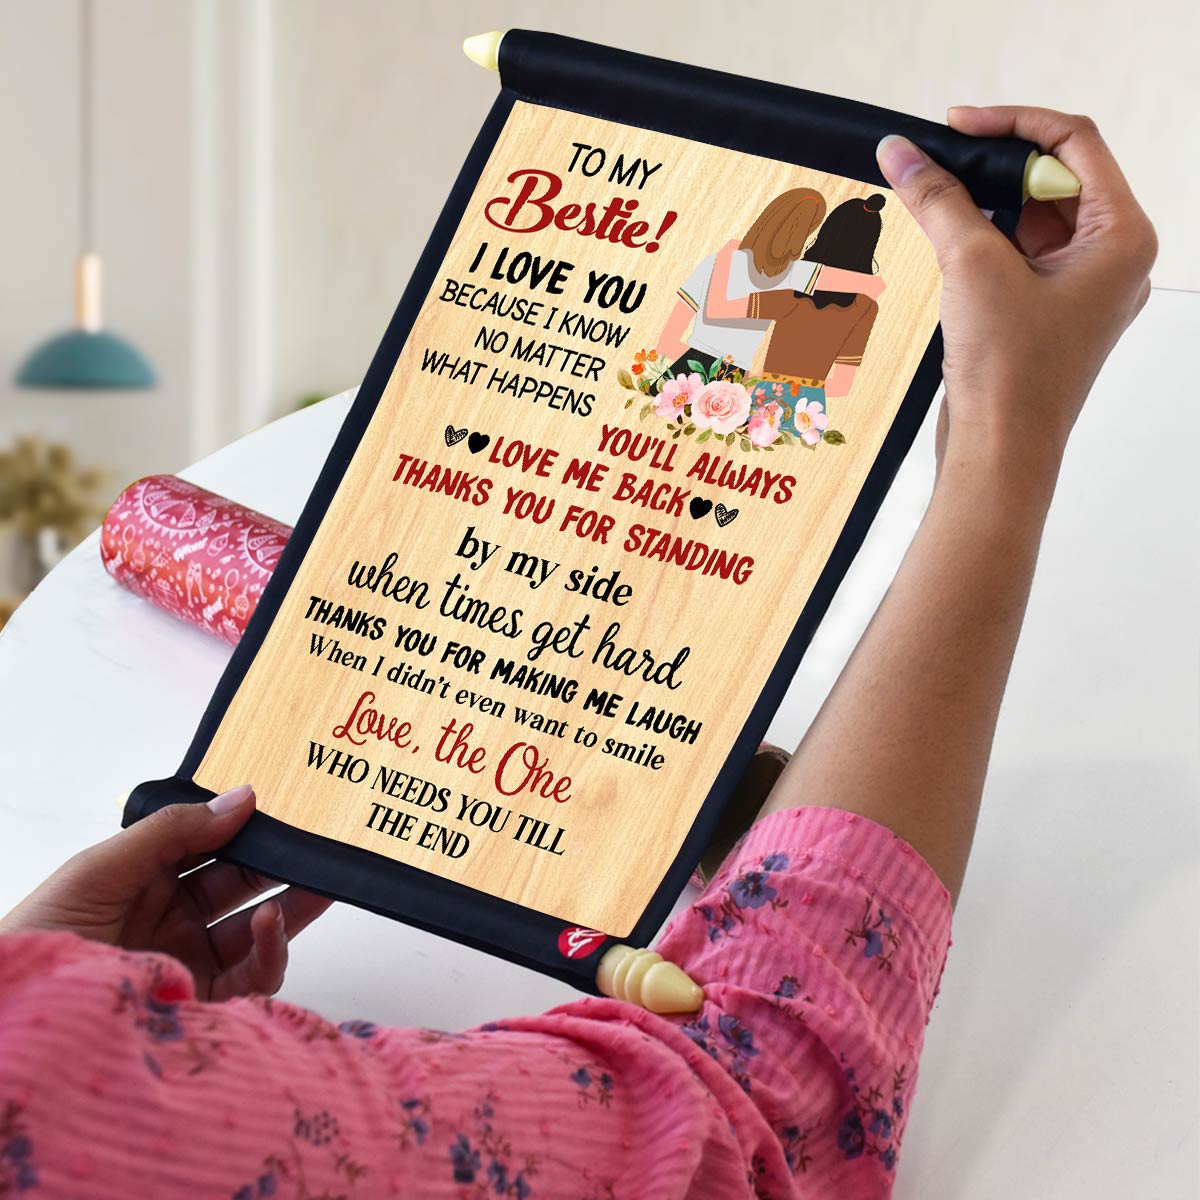 TO MY
Bestie!
I LOVE YOU
BECAUSE I KNOW
NO MATTER
WHAT HAPPENS
YOU'LL ALWAYS
LOVE ME BACK
THANKS YOU FOR STANDING
by my side
when times get hard
THANKS YOU FOR MAKING ME LAUGH
When I didn't even want to smile
Love, the One
WHO NEEDS YOU TILL
THE END